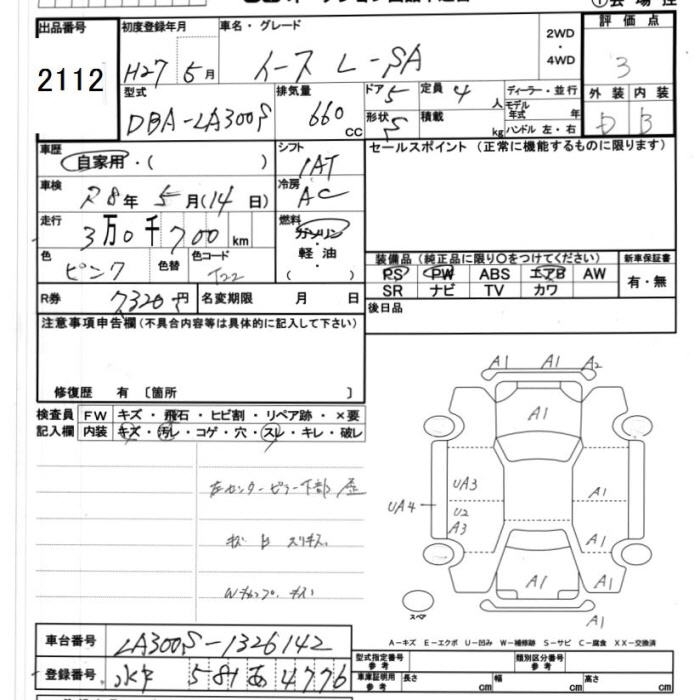 出品番号 初度登録年月 車名・グレード 2WD・4WD 評価点
2112 H27 5月 イース L-SA 3
型式 排気量 ドア 5 定員 4人 ディーラー・並行 外装 内装
DBA-LA300S 660cc 形状 5 積載 kg モデル年式 年 ハンドル 左・右 D B
車歴 自家用・( ) シフト IAT セールスポイント (正常に機能するものに限ります)
車検 R8年 5月(14日) 冷房 AC
走行 3万0千700km 燃料 ガソリン 軽・油 ( )
色 ピンク 色替 色コード T22 装備品 (純正品に限り○をつけてください) 新車保証書
PS PW ABS エアB AW 有・無
SR ナビ TV カワ
R券 7320円 名変期限 月 日 後日品
注意事項申告欄 (不具合内容等は具体的に記入して下さい)
修復歴 有 〔箇所 〕
検査員 FW キズ・飛石・ヒビ割・リペア跡・×要
記入欄 内装 キズ・汚レ・コゲ・穴・スレ・キレ・破レ
左センターピラー下部
キズ スリキズ
A1 A1 A2
A1
UA3 A1
UA4 U2
A3 A1
A1 A1
A1
スペア
A-キズ E-エクボ U-凹み W-補修跡 S-サビ C-腐食 XX-交換済
車台番号 LA300S-1326142
型式指定番号 参考 類別区分番号 参考
登録番号 水戸 581 あ 4776
車庫証明用 参考 長さ cm 幅 cm 高さ cm